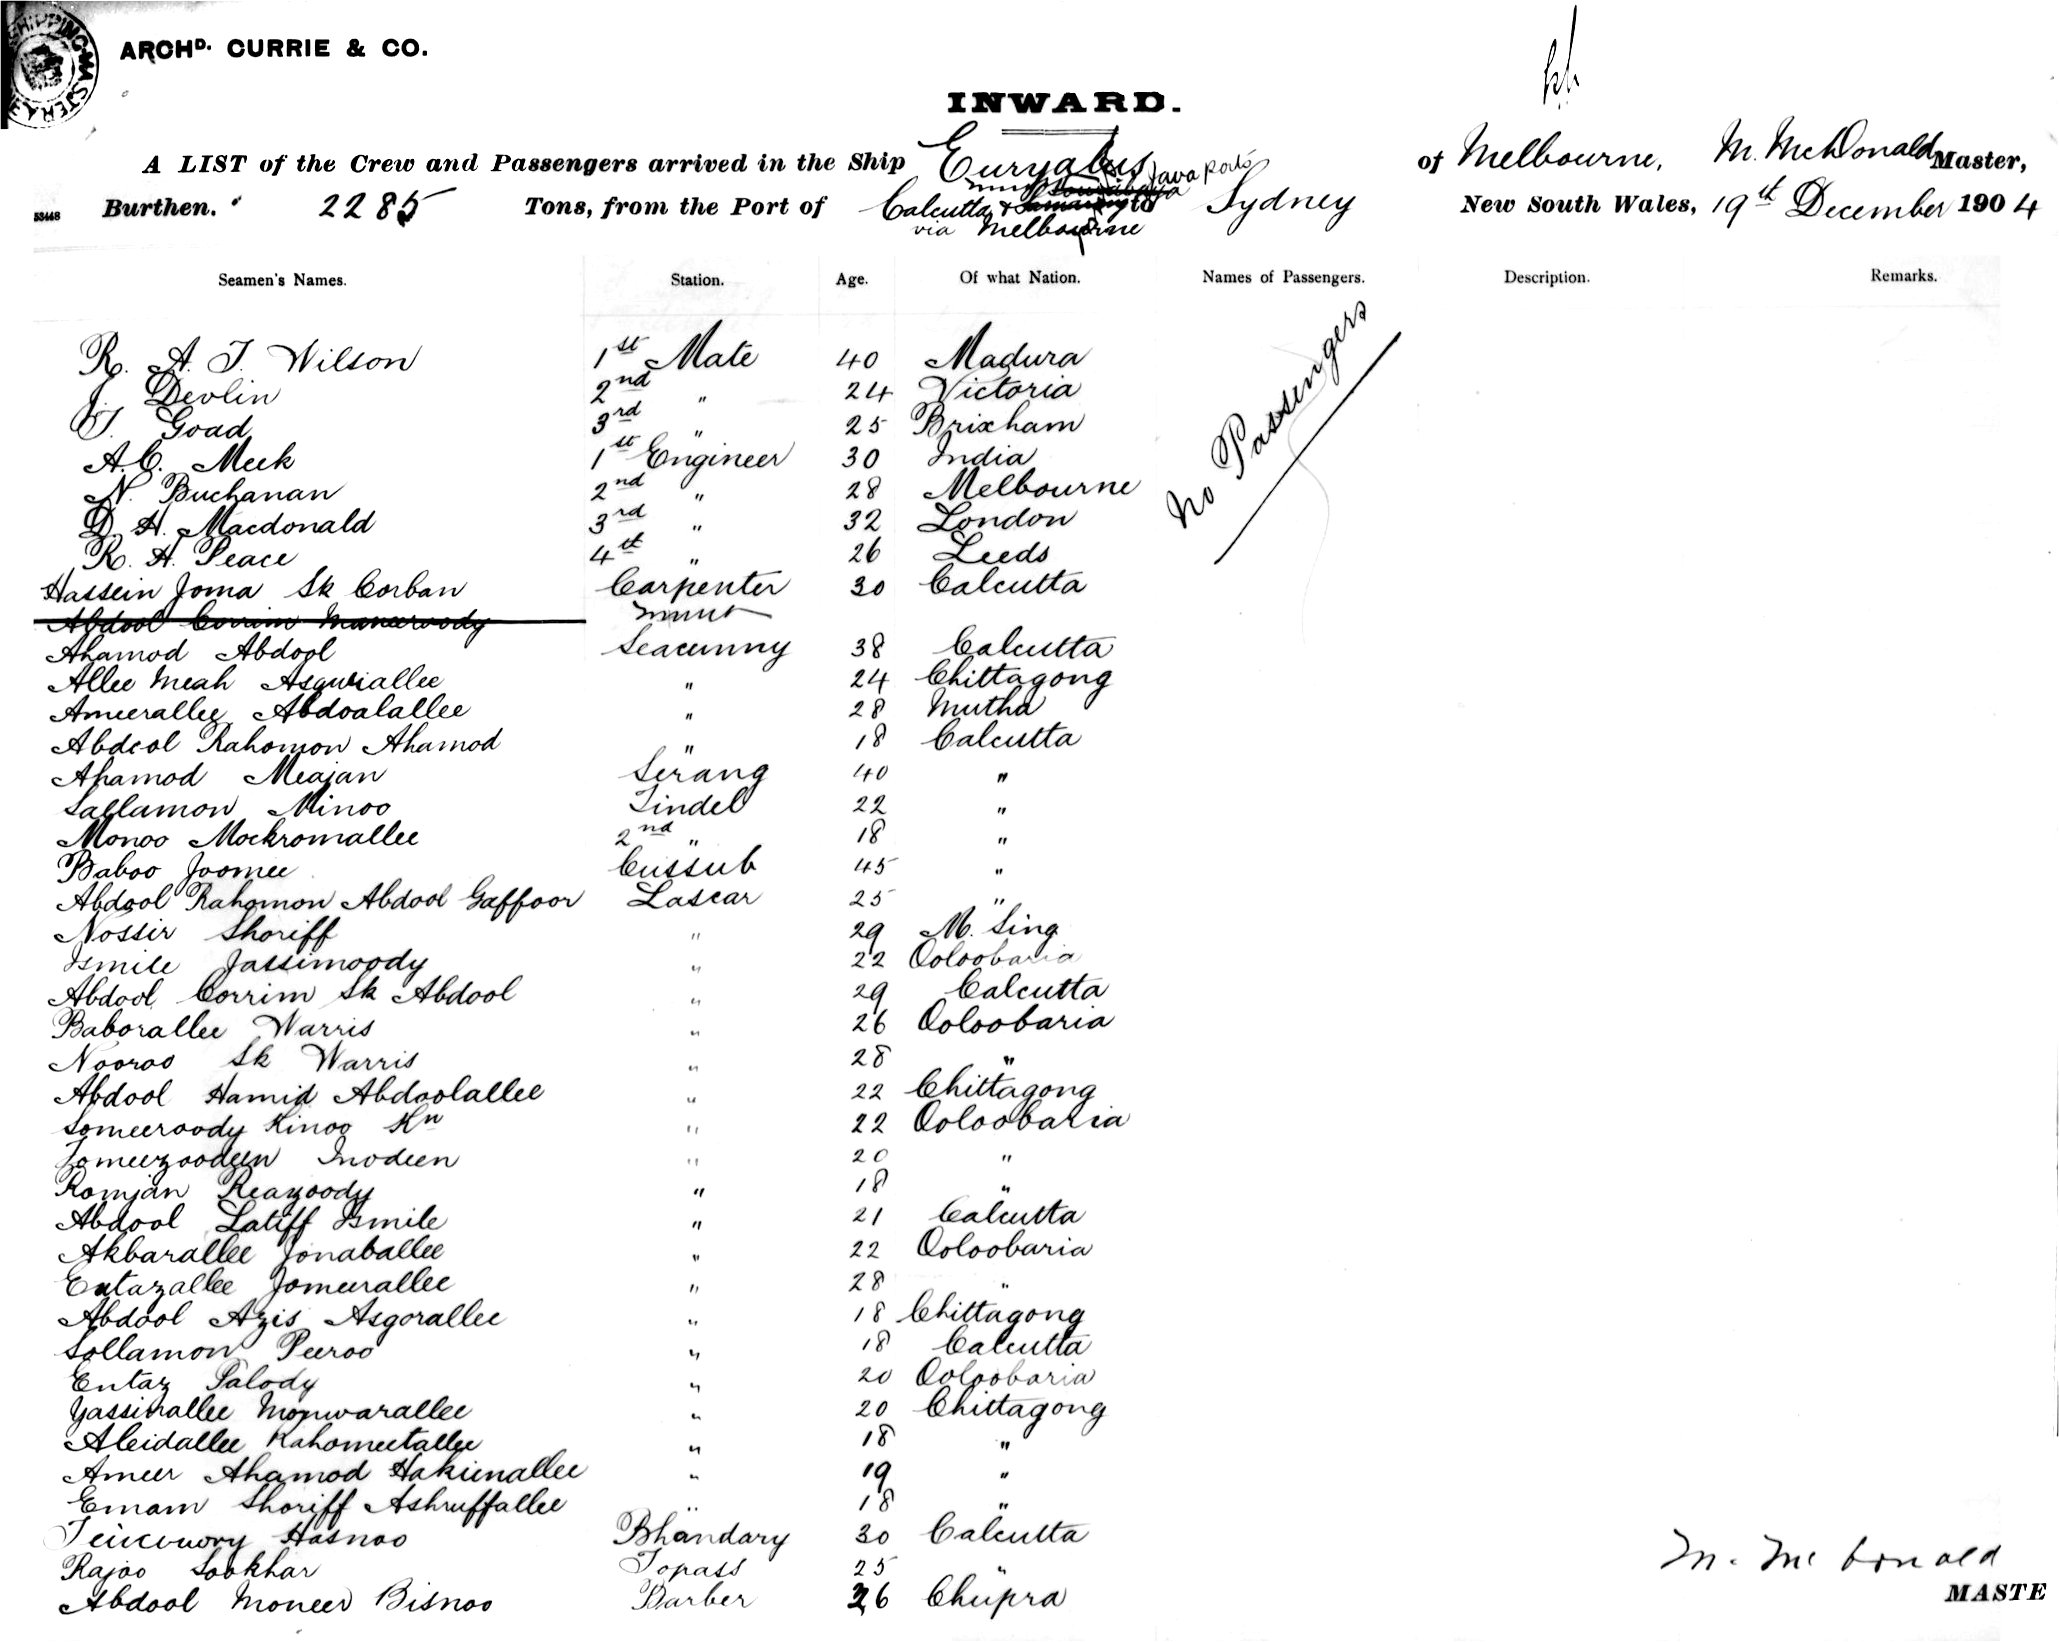 SHIPPING MASTER
ARCHD. CURRIE & CO.
INWARD.
A LIST of the Crew and Passengers arrived in the Ship Euryalus of Melbourne, M. McDonald Master,
53448 Burthen. 2285 Tons, from the Port of Calcutta & Java Ports to Sydney New South Wales, 19th December 1904
via Melbourne
Seamen's Names. Station. Age. Of what Nation. Names of Passengers. Description. Remarks.
No Passengers
R. A. J. Wilson 1st Mate 40 Madura
J. Devlin 2nd " 24 Victoria
T. Goad 3rd " 25 Brixham
A.C. Meek 1st Engineer 30 India
N. Buchanan 2nd " 28 Melbourne
D. H. Macdonald 3rd " 32 London
R. A. Peace 4th " 26 Leeds
Hassein Joma Sk Corban Carpenter 30 Calcutta
Abdool Corrim
Ahamod Abdool Seacunny 38 Calcutta
Allee Meah Asguriallee " 24 Chittagong
Ameerallee Abdoalallee " 28 Mutha
Abdool Rahomon Ahamod " 18 Calcutta
Ahamod Meajan Serang 40 "
Sallamon Minoo Tindel 22 "
Monoo Mockromallee 2nd " 18 "
Baboo Joomee Cussub 45 "
Abdool Rahomon Abdool Gaffoor Lascar 25 "
Nossir Shoriff " 29 M. Sing
Ismile Jassimoody " 22 Ooloobaria
Abdool Corrim Sk Abdool " 29 Calcutta
Baborallee Warris " 26 Ooloobaria
Nooroo Sk Warris " 28 "
Abdool Hamid Abdoolallee " 22 Chittagong
Someeroody Kinoo Kn " 22 Ooloobaria
Jomeerzoodeen Inodeen " 20 "
Romjan Reazoody " 18 "
Abdool Latiff Ismile " 21 Calcutta
Akbarallee Jonaballee " 22 Ooloobaria
Entazallee Jomeerallee " 28 "
Abdool Azis Asgorallee " 18 Chittagong
Sollamon Peeroo " 18 Calcutta
Entaz Palody " 20 Ooloobaria
Yassinallee Monwarallee " 20 Chittagong
Abeidallee Rahomeetallee " 18 "
Ameer Ahamod Hakimallee " 19 "
Emam Shoriff Ashruffallee " 18 "
Hasnoo Bhandary 30 Calcutta
Rajoo Sookhar Topass 25 "
Abdool Moneer Bisnoo Barber 26 Chupra
M. McDonald
MASTE